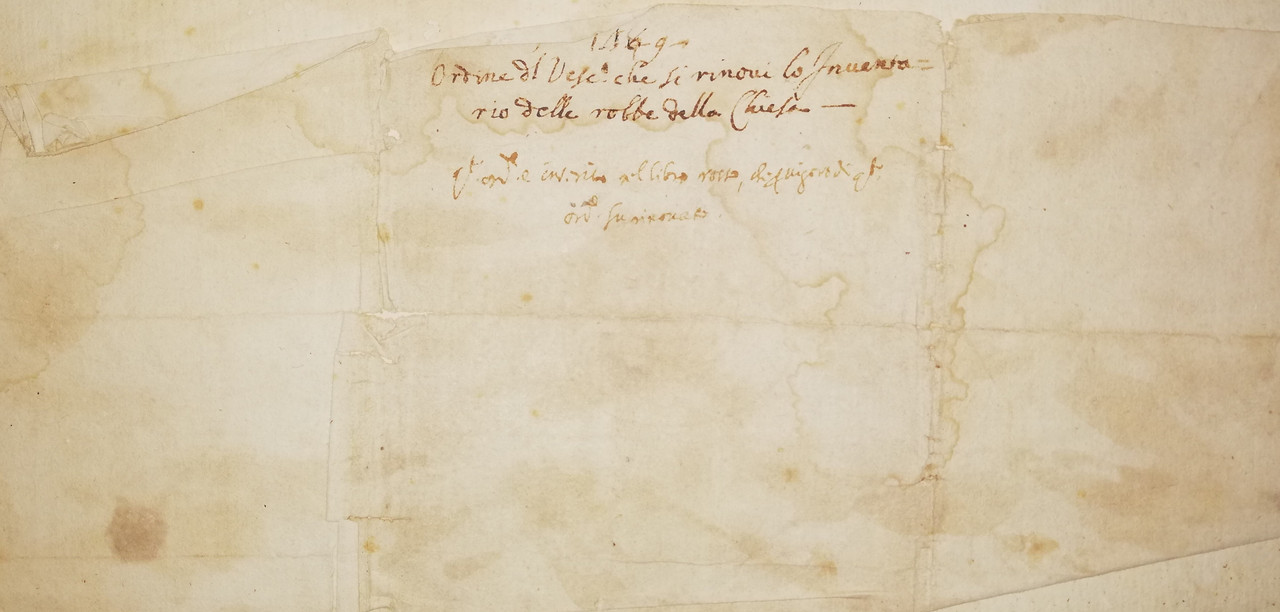 1469
Ordine dl Vesc.º che si rinovi lo Inventa=
rio delle robbe della Chiesa —
qst. ord. e inserito nel libro rosso, che in vigore di qst.
ord. fu rinovato.